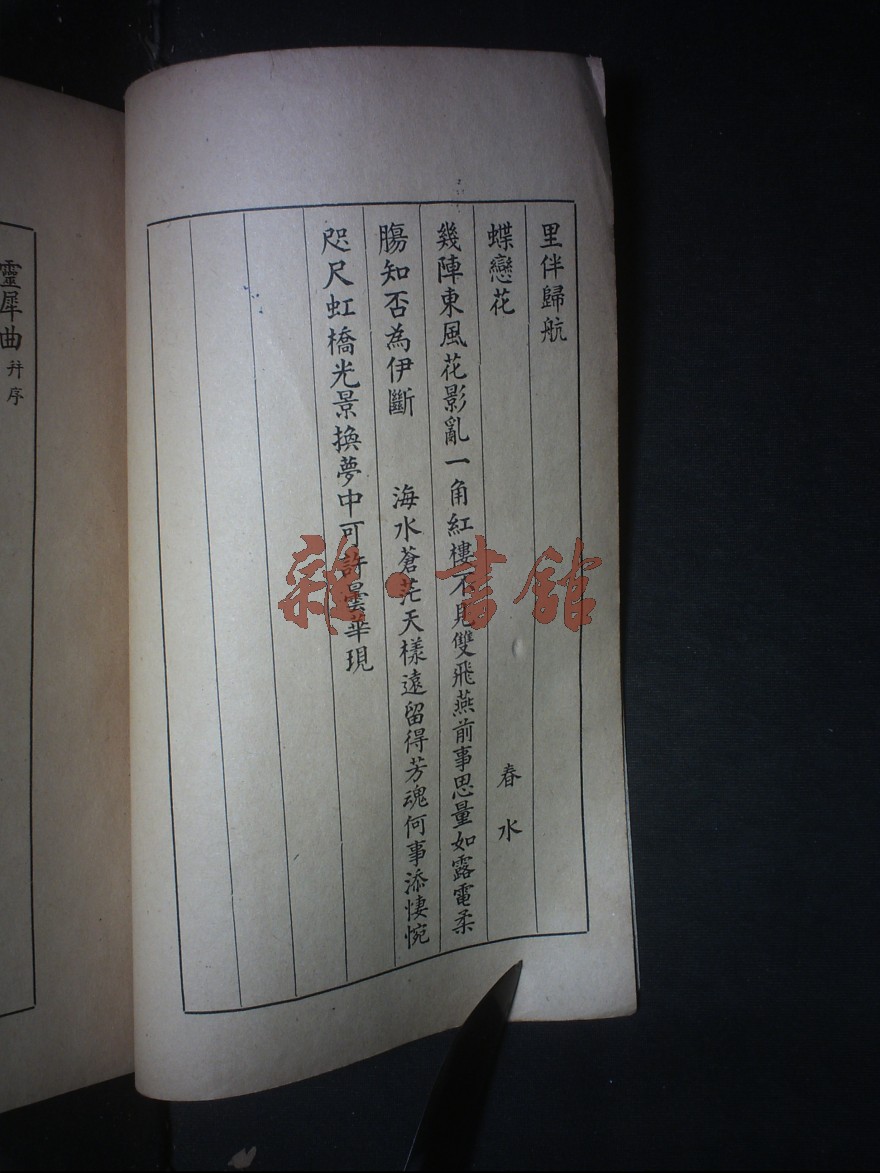 里伴歸航
蝶戀花　春水
幾陣東風花影亂一角紅樓不見雙飛燕前事思量如露電柔
腸知否為伊斷　海水蒼茫天樣遠留得芳魂何事添悽惋
咫尺虹橋光景換夢中可許曇華現
靈犀曲 幷序
雜·書館